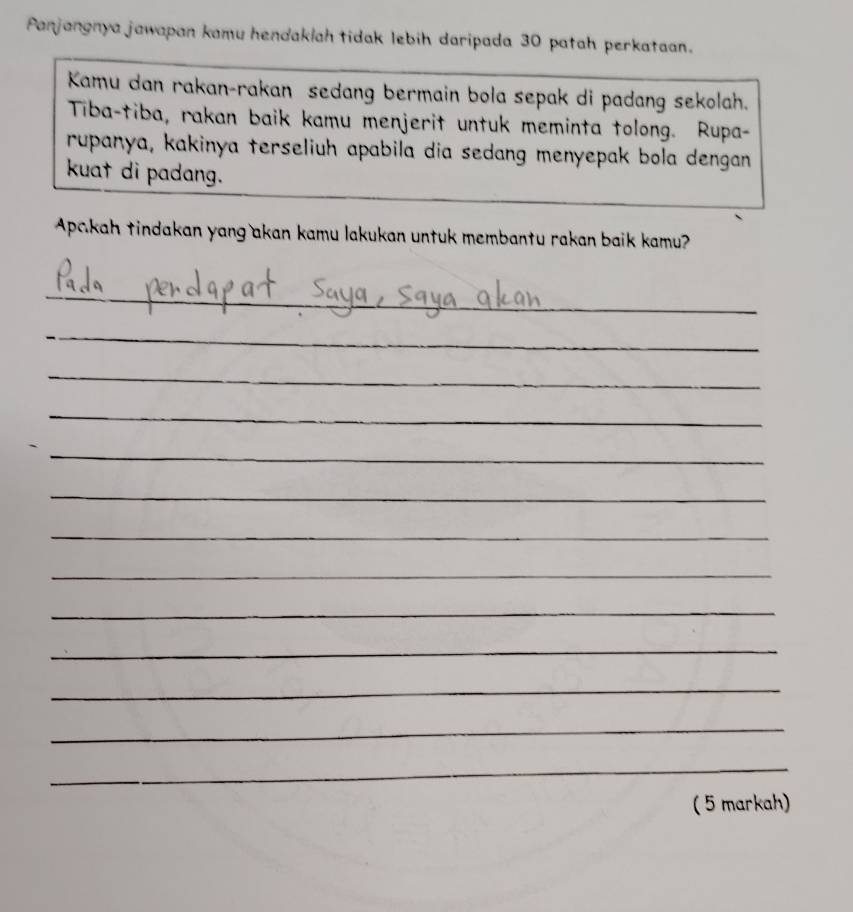 Panjangnya jawapan kamu hendaklah tidak lebih daripada 30 patah perkataan.
Kamu dan rakan-rakan sedang bermain bola sepak di padang sekolah.
Tiba-tiba, rakan baik kamu menjerit untuk meminta tolong. Rupa-
rupanya, kakinya terseliuh apabila dia sedang menyepak bola dengan
kuat di padang.
Apakah tindakan yang akan kamu lakukan untuk membantu rakan baik kamu?
Pada pendapat saya, saya akan
( 5 markah)